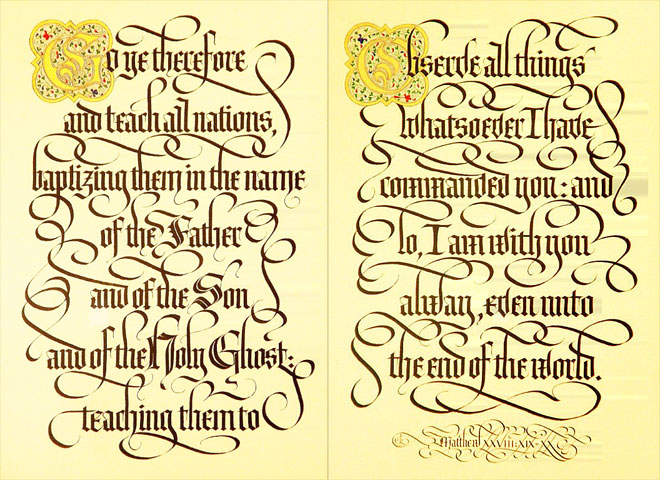 Go ye therefore
and teach all nations,
baptizing them in the name
of the Father
and of the Son
and of the Holy Ghost:
teaching them to
Observe all things
Whatsoever I have
commanded you: and
lo, I am with you
alway, even unto
the end of the world.
Matthew XXVIII:XIX-XX